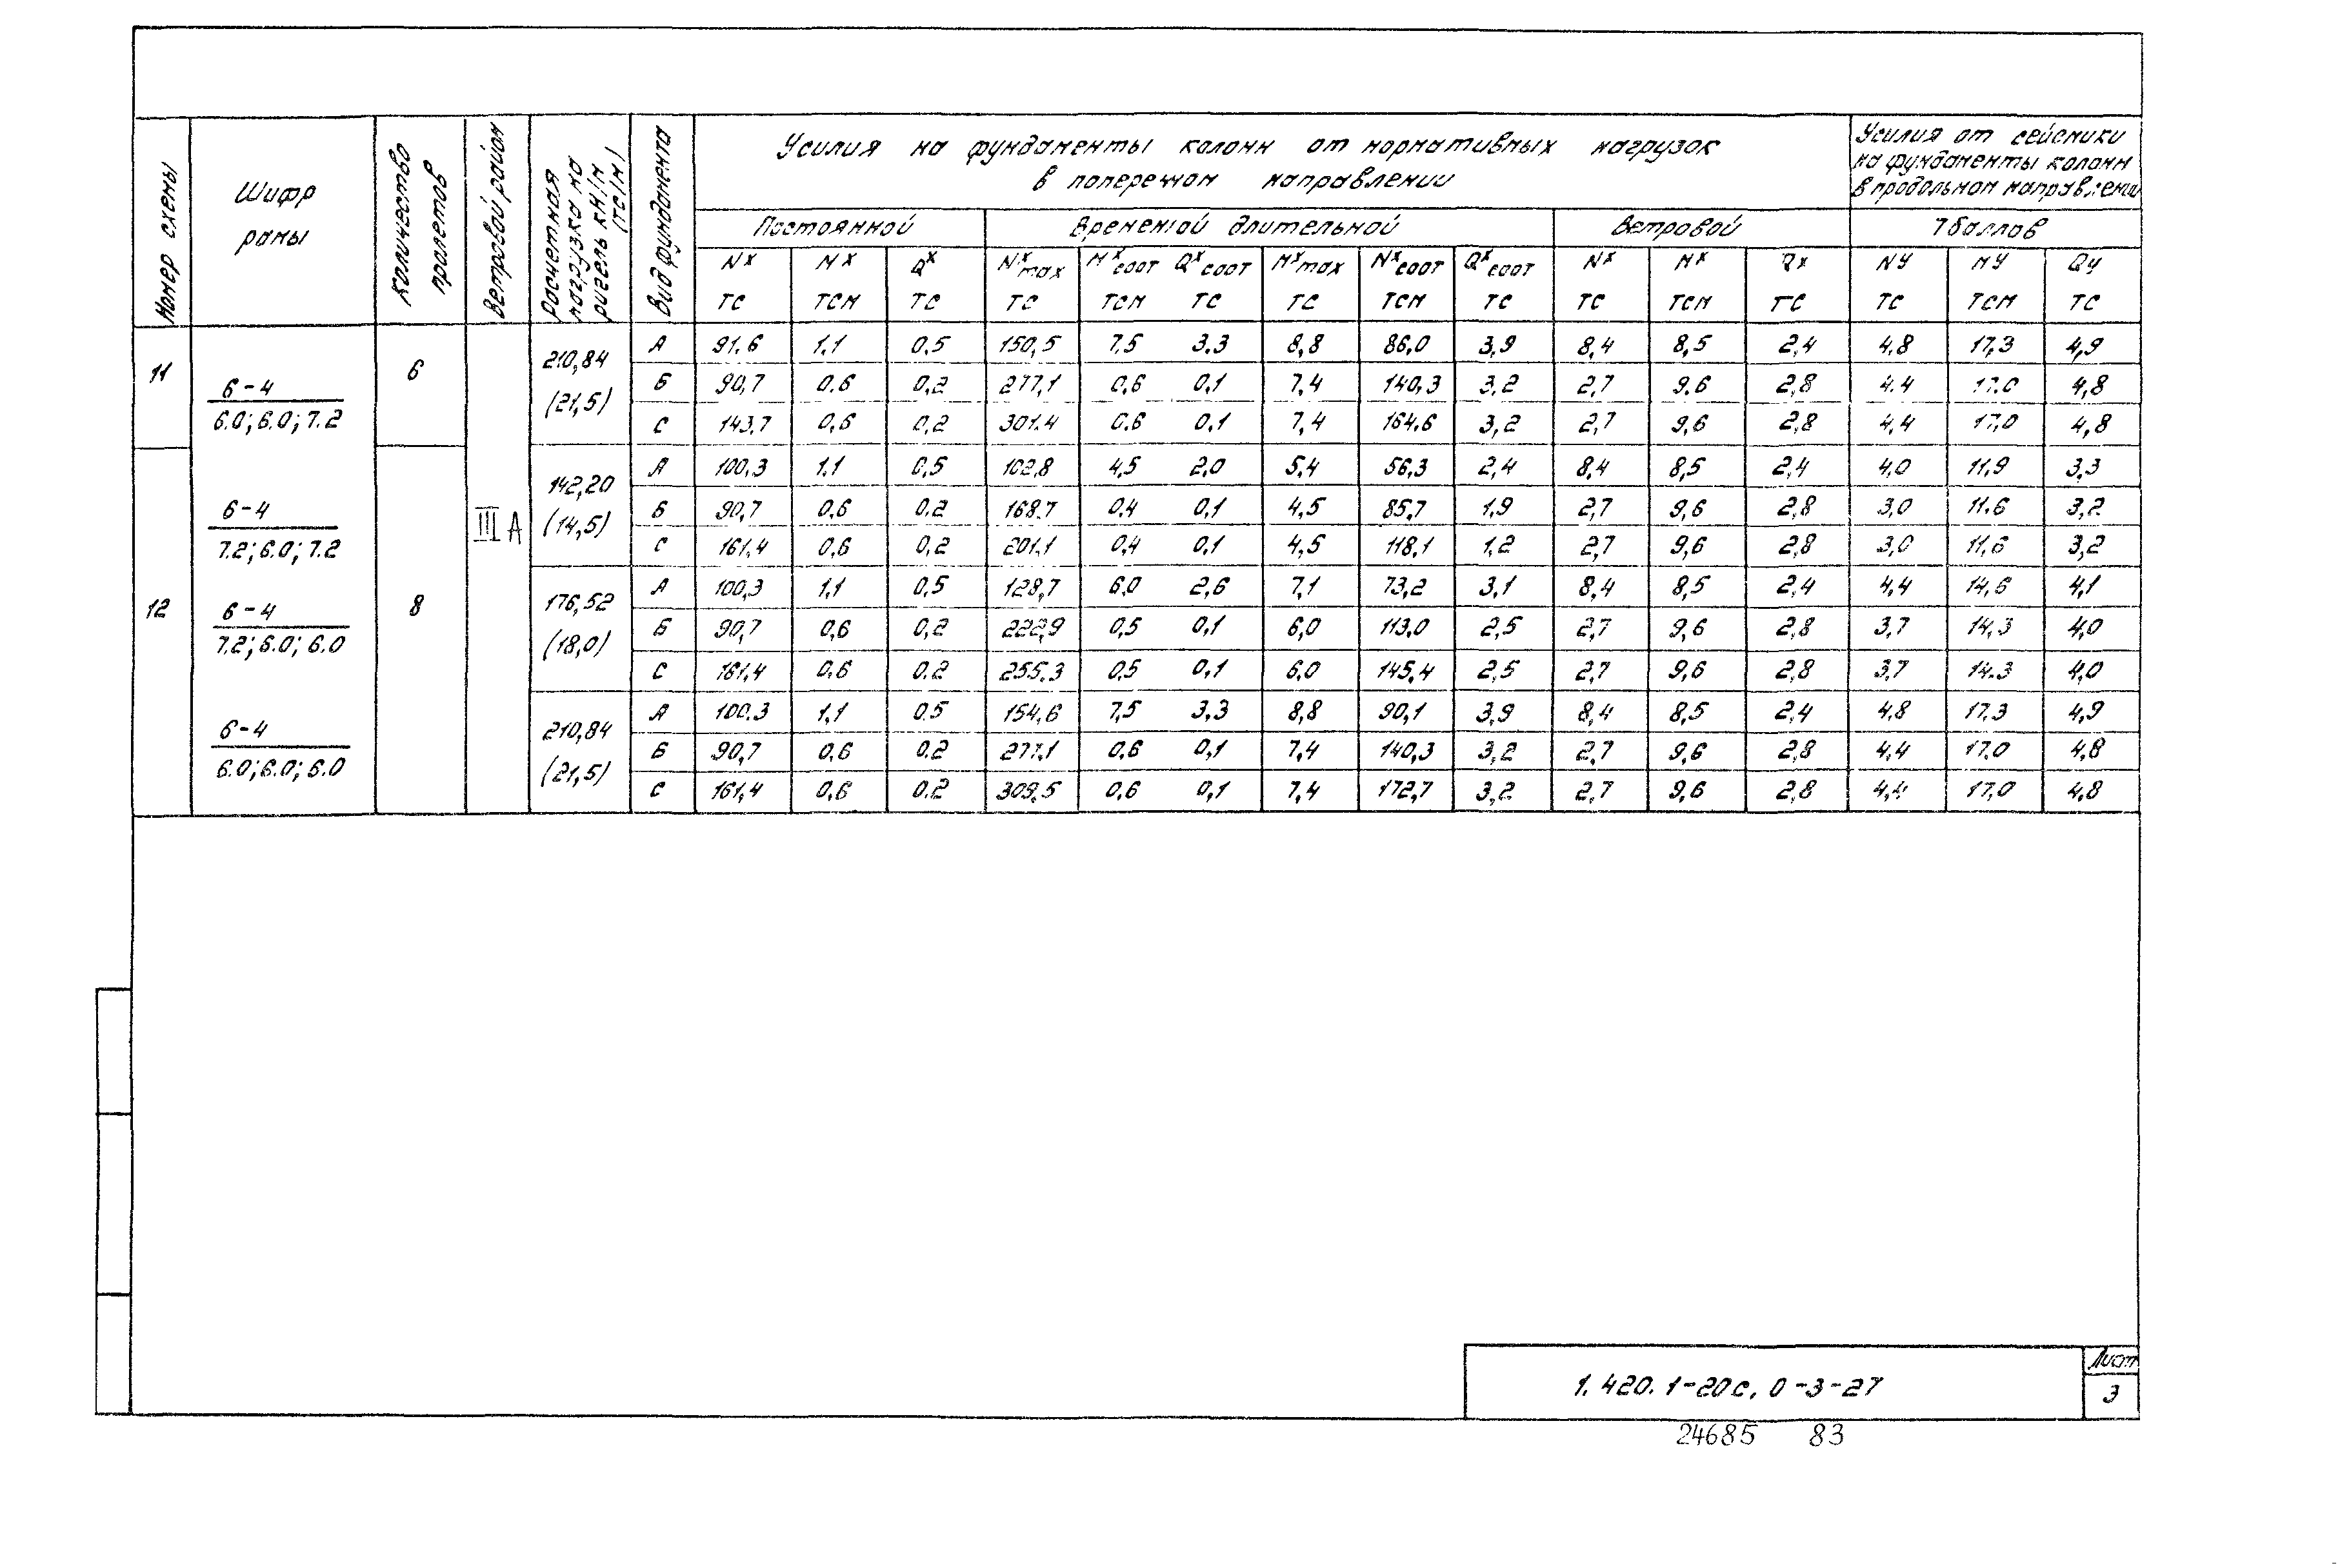 Номер схемы
Шифр рамы
Количество пролетов
Ветровой район
Расчетная нагрузка на ригель кН/м (тс/м)
Вид фундамента
Усилия на фундаменты колонн от нормативных нагрузок
в поперечном направлении
Усилия от сейсмики
на фундаменты колонн
в продольном направлении
Постоянной Временной длительной Ветровой 7 баллов
Nх Mх Qх Nхmax Mхсоот Qхсоот Mхmax Nхсоот Qхсоот Nх Mх Qх Nу Mу Qу
тс тсм тс тс тсм тс тс тсм тс тс тсм тс тс тсм тс
11 6-4 / 6.0; 6.0; 7.2 6 III А 210,84 (21,5)
А 91.6 1.1 0.5 150,5 7.5 3.3 8,8 86,0 3,9 8,4 8,5 2,4 4.8 17,3 4,9
Б 90,7 0.6 0,2 277,1 0,6 0,1 7,4 140,3 3,2 2,7 9.6 2,8 4.4 17.0 4,8
С 143,7 0,6 0,2 301.4 0.6 0,1 7,4 164,6 3,2 2,7 9,6 2,8 4,4 17,0 4,8
12 6-4 / 7.2; 6.0; 7.2 8 142,20 (14,5)
А 100,3 1.1 0,5 102,8 4,5 2.0 5,4 56,3 2,4 8,4 8,5 2,4 4,0 11,9 3,3
Б 90,7 0,6 0.2 168,7 0,4 0,1 4,5 85,7 1,9 2,7 9,6 2,8 3,0 11.6 3,2
С 161,4 0,6 0,2 201,1 0,4 0,1 4,5 118,1 1,2 2,7 9,6 2,8 3,0 11,6 3,2
6-4 / 7.2; 6.0; 6.0 176,52 (18,0)
А 100,3 1,1 0,5 128,7 6,0 2,6 7,1 73,2 3,1 8,4 8,5 2,4 4,4 14,6 4,1
Б 90,7 0,6 0,2 222,9 0,5 0,1 6,0 113,0 2,5 2,7 9,6 2,8 3,7 14,3 4,0
С 161,4 0,6 0.2 255.3 0,5 0,1 6,0 145,4 2,5 2,7 9,6 2,8 3,7 14.3 4,0
6-4 / 6.0; 6.0; 6.0 210,84 (21,5)
А 100.3 1,1 0.5 154,6 7,5 3,3 8,8 90,1 3,9 8,4 8,5 2,4 4,8 17.3 4,9
Б 90,7 0,6 0.2 277,1 0,6 0,1 7,4 140,3 3,2 2,7 9,6 2,8 4,4 17.0 4,8
С 161,4 0,6 0.2 309,5 0,6 0,1 7,4 172,7 3,2 2,7 9,6 2,8 4,4 17,0 4,8
1.420.1-20с.0-3-27
Лист
3
24685 83